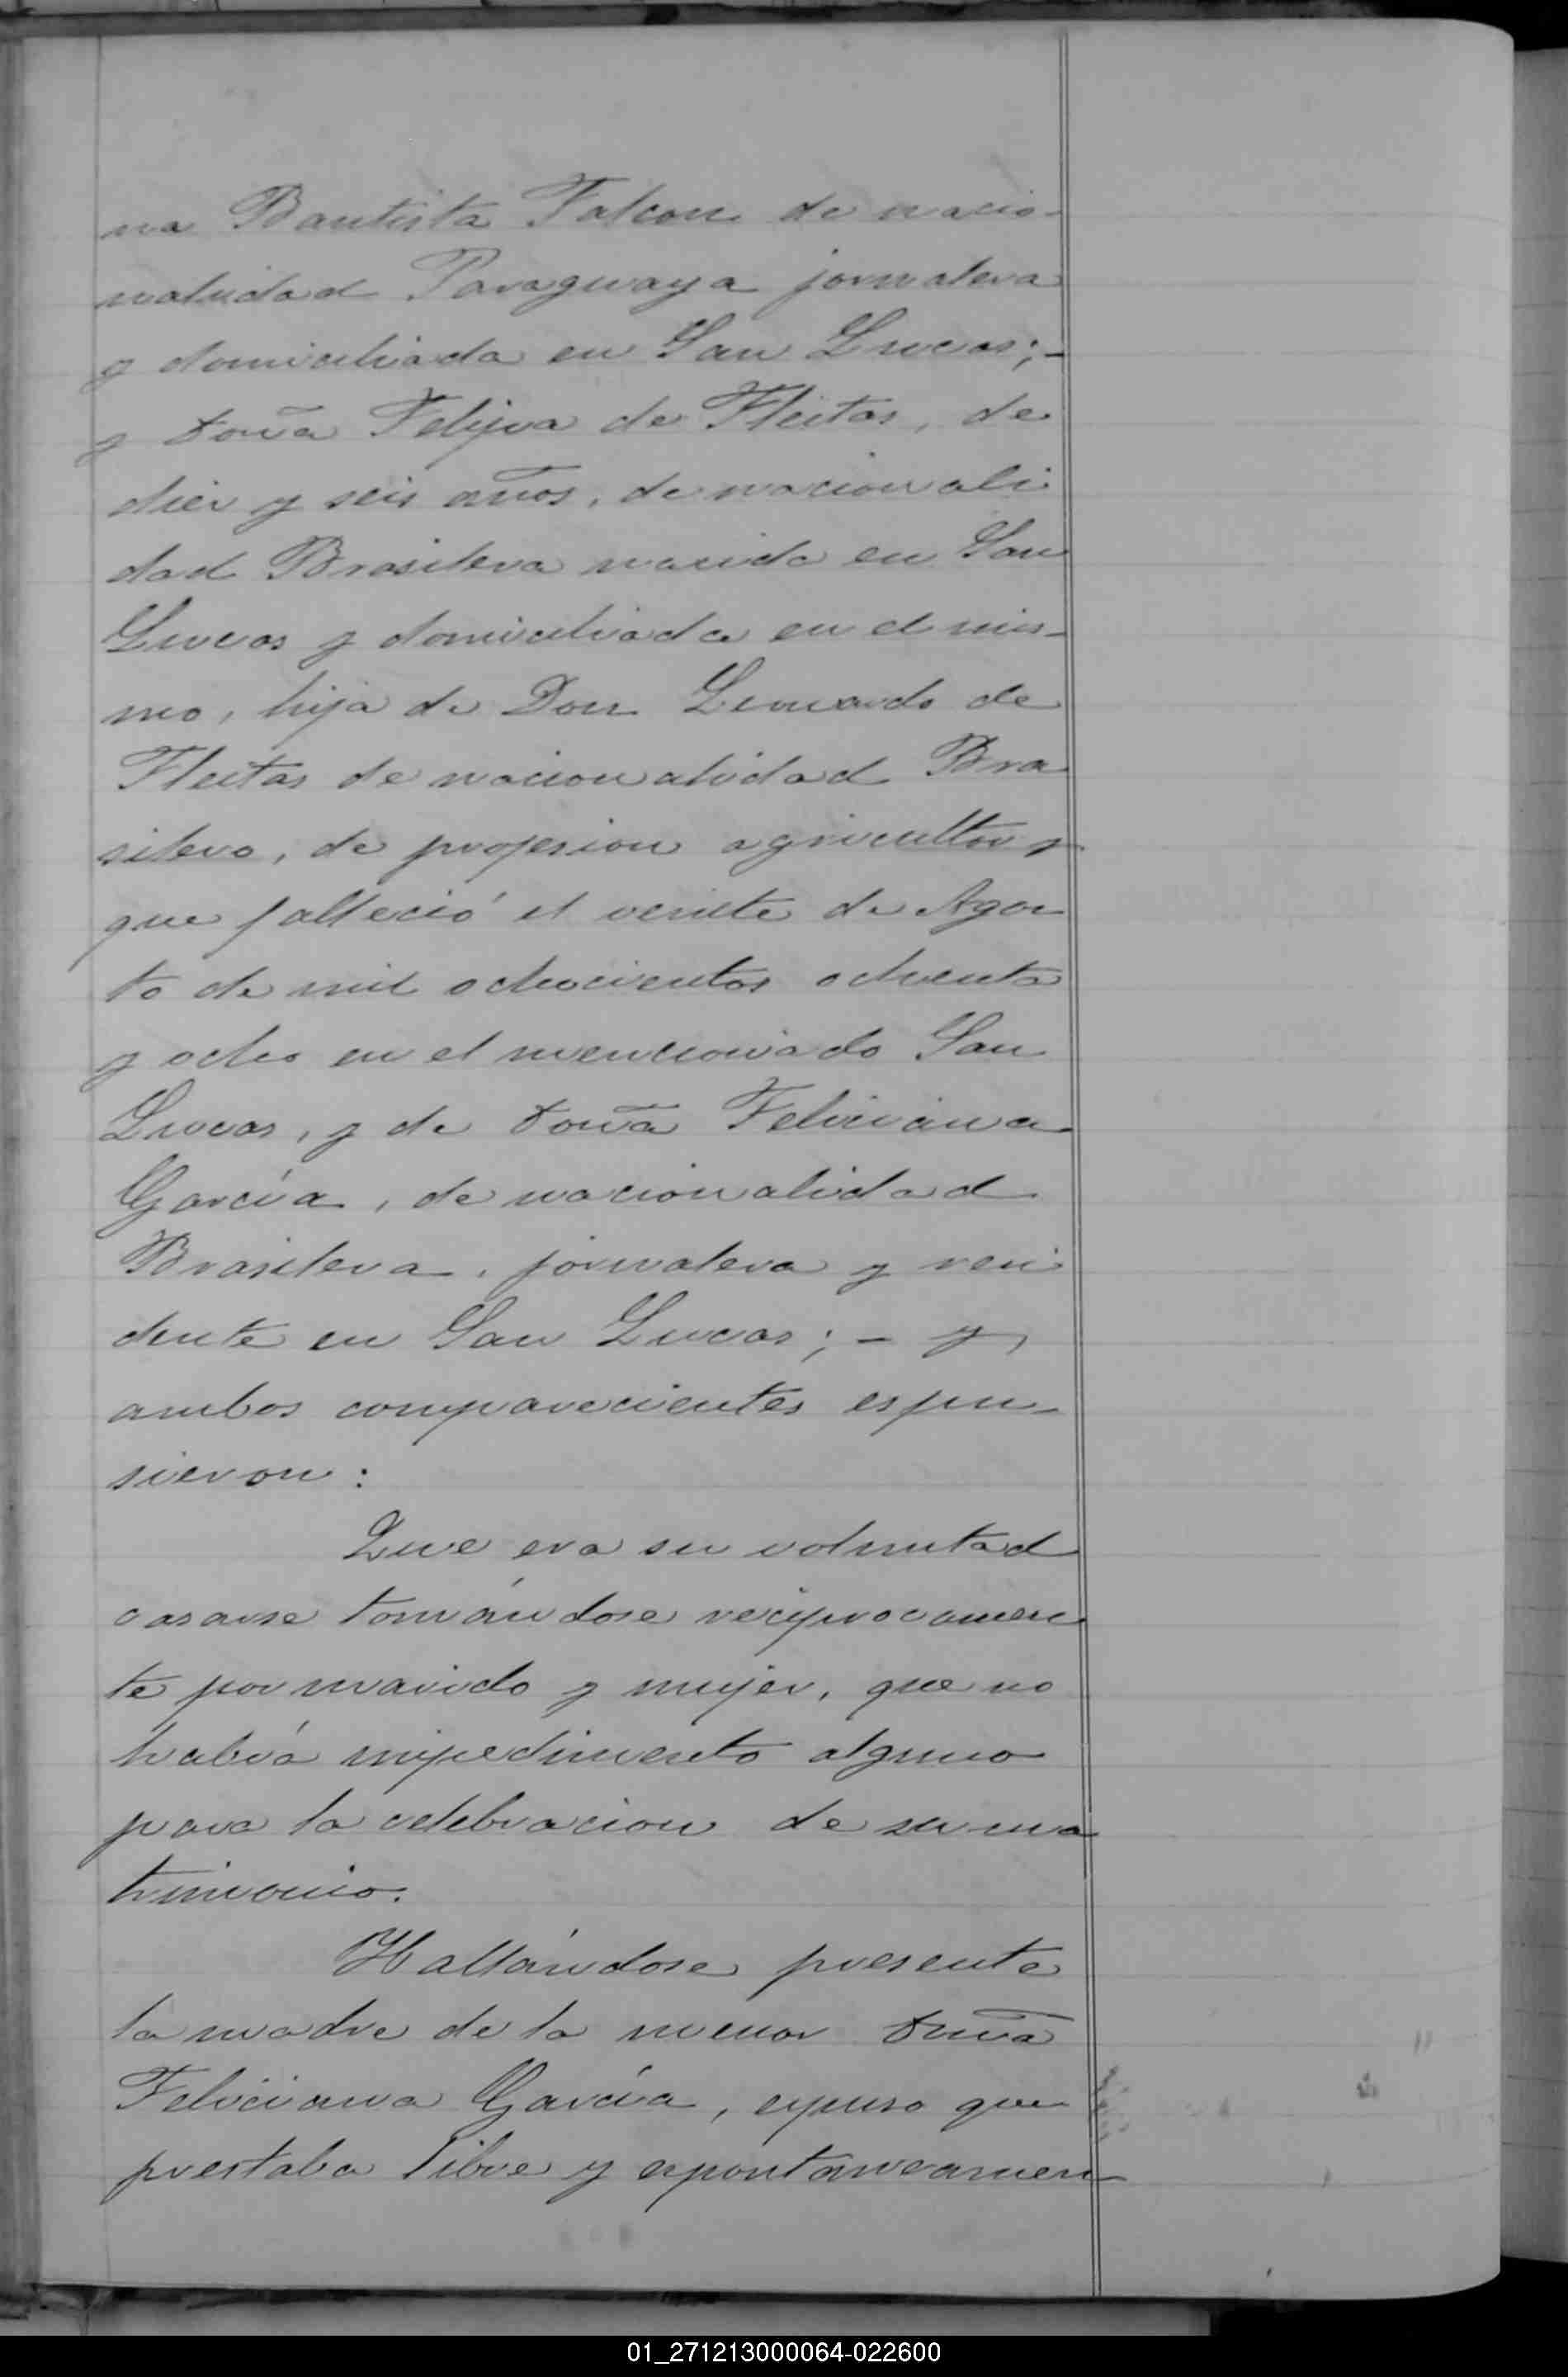 na Bautista Falcon de nacio-
nalidad Paraguaya jornalera
y domiciliada en San Lucas; -
y Doña Felipa de Fleitas, de
diez y seis años, de nacionali
dad Brasilera nacida en San
Lucas y domiciliada en el mis-
mo, hija de Don Leonardo de
Fleitas de nacionalidad Bra
silero, de profesion agricultor y
que falleció el veinte de Agos
to de mil ochocientos ochenta
y ocho en el mencionado San
Lucas, y de Doña Feliciana
García, de nacionalidad
Brasilera, jornalera y resi
dente en San Lucas; - y,
ambos comparecientes espu-
sieron:
Que era su voluntad
casarse tomándose reciprocamen
te por marido y mujer, que no
había impedimento alguno
para la celebracion de su ma
trimonio.
Hallándose presente
la madre de la menor Doña
Feliciana García, espuso que
prestaba libre y espontaneamen
01_271213000064-022600